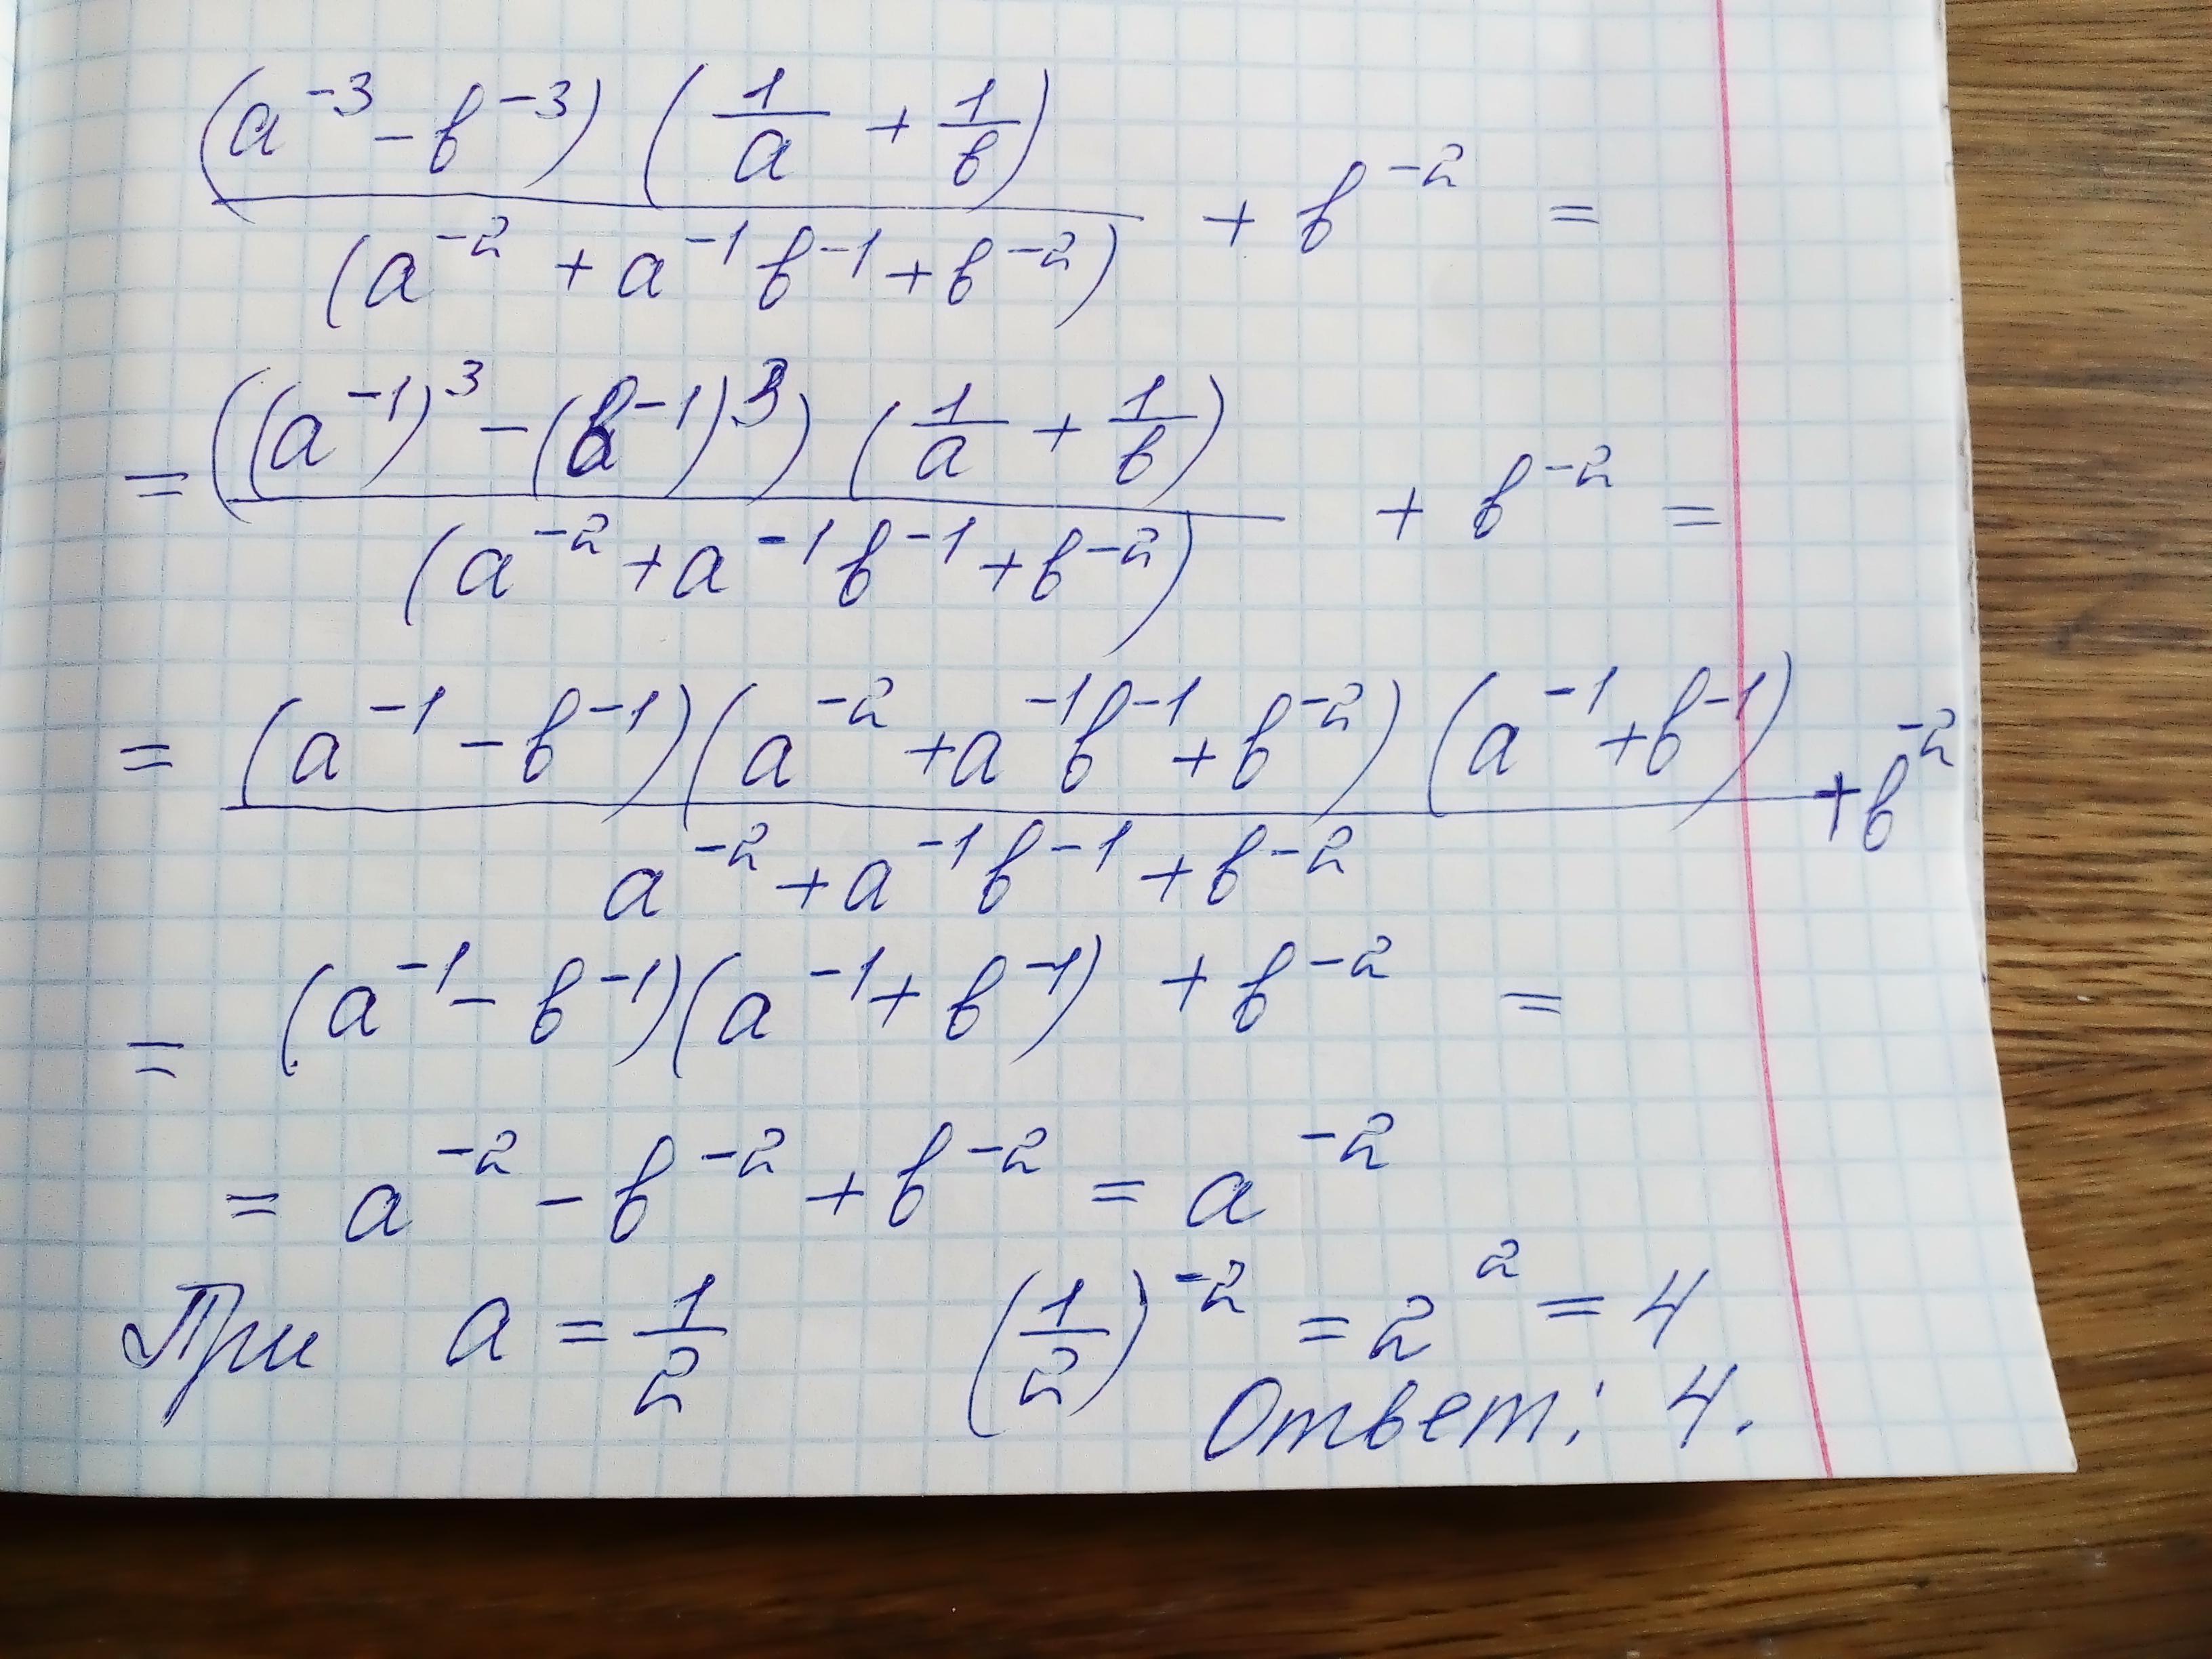 (a⁻³ - b⁻³) (1/a + 1/b) / (a⁻² + a⁻¹ b⁻¹ + b⁻²) + b⁻² =
= ((a⁻¹)³ - (b⁻¹)³) (1/a + 1/b) / (a⁻² + a⁻¹ b⁻¹ + b⁻²) + b⁻² =
= (a⁻¹ - b⁻¹)(a⁻² + a⁻¹b⁻¹ + b⁻²)(a⁻¹ + b⁻¹) / a⁻² + a⁻¹b⁻¹ + b⁻² + b⁻²
= (a⁻¹ - b⁻¹)(a⁻¹ + b⁻¹) + b⁻² =
= a⁻² - b⁻² + b⁻² = a⁻²
При a = 1/2 (1/2)⁻² = 2² = 4
Ответ: 4.